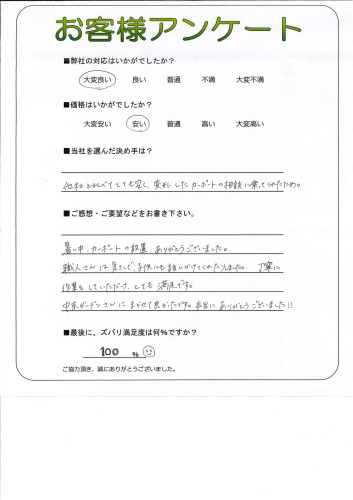 お客様アンケート
■弊社の対応はいかがでしたか？
大変良い 良い 普通 不満 大変不満
■価格はいかがでしたか？
大変安い 安い 普通 高い 大変高い
■当社を選んだ決め手は？
他社とくらべてとても安く、変形したカーポートの相談に乗ってくれたため。
■ご感想・ご要望などをお書き下さい。
暑い中、カーポートの設置 ありがとうございました。
職人さんは気さくで、子供にも話しかけてくれたりしました。 丁寧に
作業をしていただけ、とても 満足です。
中京ガーデンさんに まかせて良かったです。本当に ありがとうございました!!
■最後に、ズバリ満足度は何%ですか？
100 %
ご協力頂き、誠にありがとうございました。